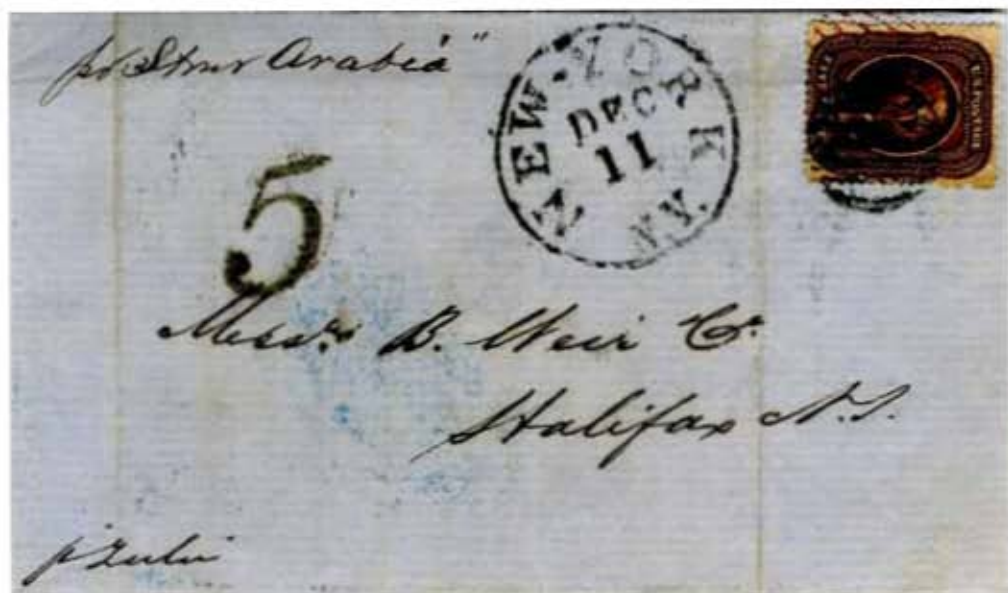 pr Stmr Arabia"
NEW-YORK N.Y.
DEC
11
U.S. POSTAGE
5
Messrs B. Weir Co.
Halifax N.S.